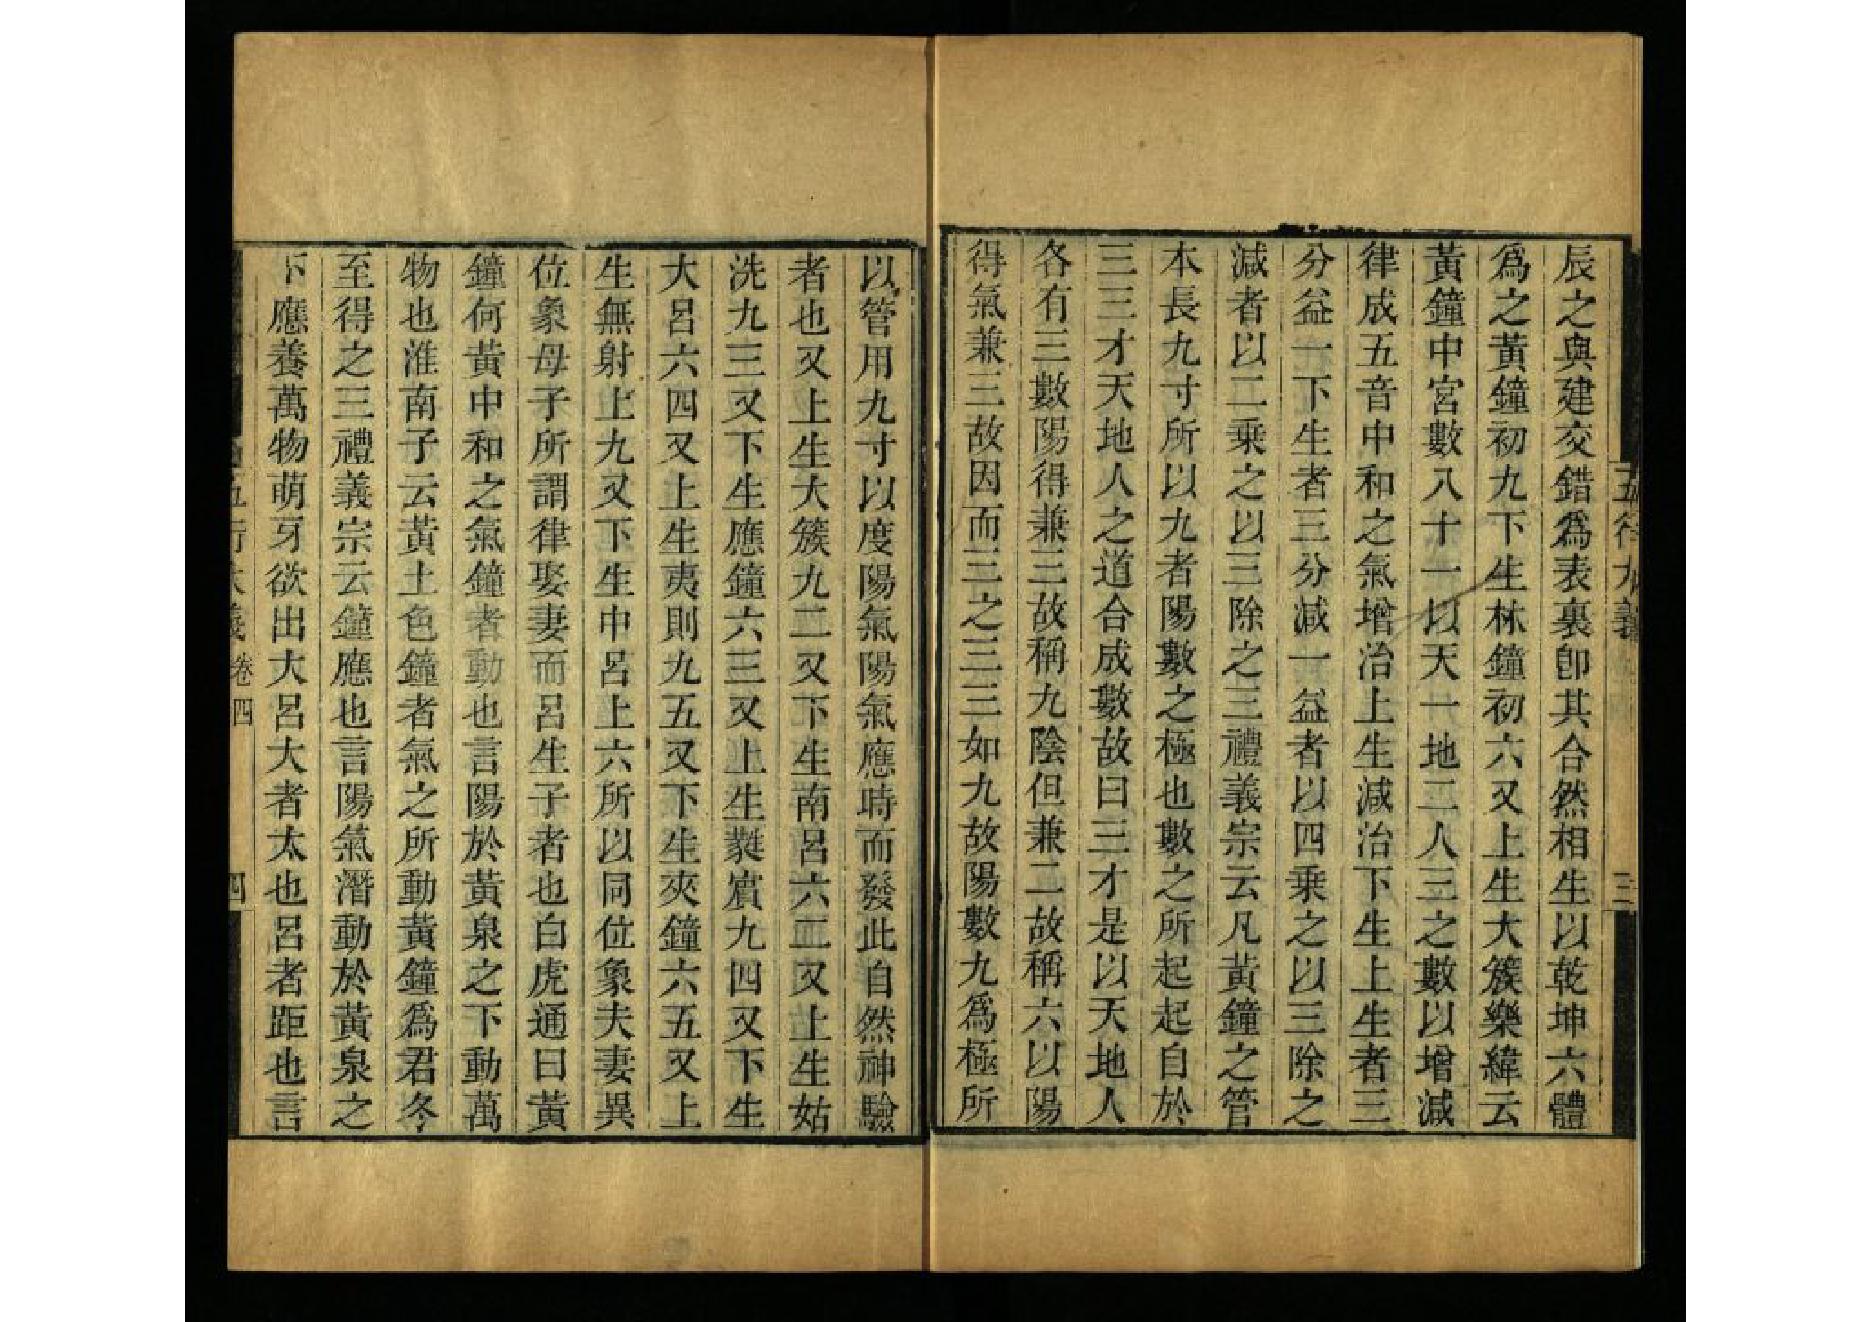 五行大義
三
辰之與建交錯爲表裏卽其合然相生以乾坤六體
爲之黃鐘初九下生林鐘初六又上生大簇樂緯云
黃鐘中宮數八十一以天一地二人三之數以增減
律成五音中和之氣增治上生減治下生上生者三
分益一下生者三分減一益者以四乗之以三除之
減者以二乗之以三除之三禮義宗云凡黃鐘之管
本長九寸所以九者陽數之極也數之所起起自於
三三才天地人之道合成數故曰三才是以天地人
各有三數陽得兼三故稱九陰但兼二故稱六以陽
得氣兼三故因而三之三三如九故陽數九爲極所
以管用九寸以度陽氣陽氣應時而發此自然神驗
者也又上生大簇九二又下生南呂六二又上生姑
洗九三又下生應鐘六三又上生蕤賔九四又下生
大呂六四又上生夷則九五又下生夾鐘六五又上
生無射上九又下生中呂上六所以同位象夫妻異
位象母子所謂律娶妻而呂生子者也白虎通曰黃
鐘何黃中和之氣鐘者動也言陽於黃泉之下動萬
物也淮南子云黃土色鐘者氣之所動黃鐘爲君冬
至得之三禮義宗云鐘應也言陽氣潛動於黃泉之
下應養萬物萌牙欲出大呂大者太也呂者距也言
五行大義 卷四
四